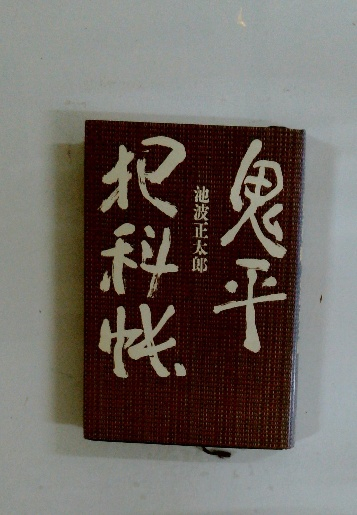 鬼平
犯科帳
池波正太郎